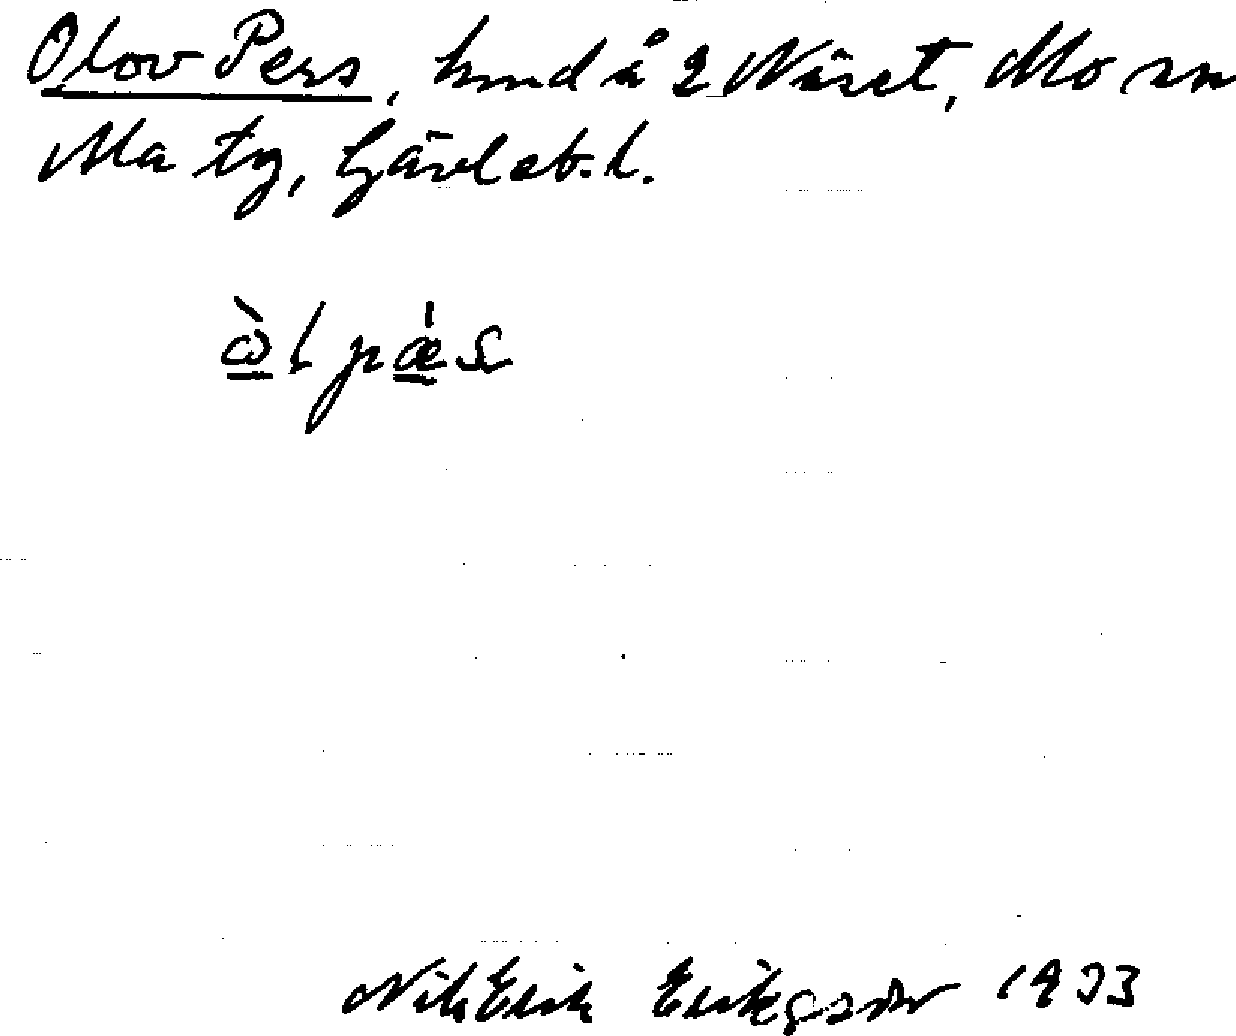 Olov Pers, hmd å 2 Näset, Mo sn
Ma tg, Gävleb. l.
ὼl pǽs
Nils Erik Eriksson 1933